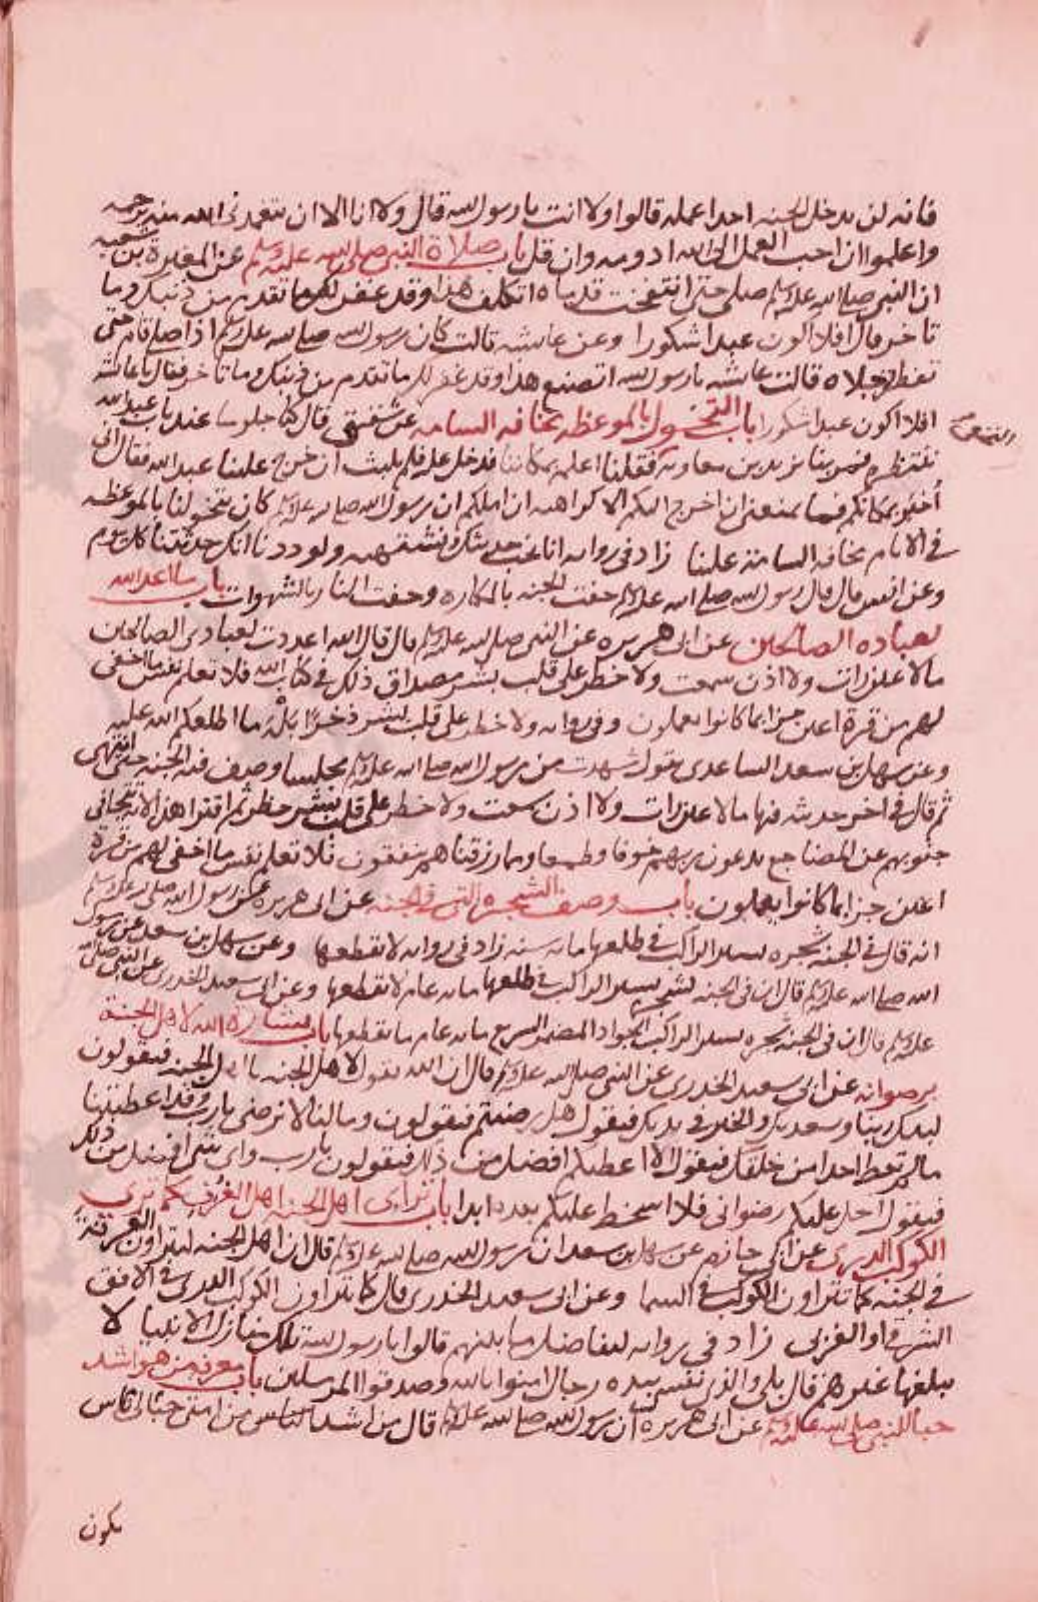 فانه لن يدخل الجنه احدا عمله قالوا ولا انت يا رسول الله قال ولا انا الا ان يتغمدني الله منه برحمه
واعلموا ان احب العمل الى الله ادومه وان قل باب صلاة النبي صلى الله عليه وسلم عن المغيرة بن شعبه
ان النبي صلى الله عليه وسلم صلى حتى انتفخت قدماه اتكلف هذا وقد غفر لك ما تقدم من ذنبك وما
تاخر قال افلا اكون عبدا شكورا وعن عايشه قالت كان رسول الله صلى الله عليه وسلم اذا صلى قام حتى
تفطر رجلاه قالت عايشه يا رسول الله اتصنع هذا وقد غفر لك ما تقدم من ذنبك وما تاخر فقال يا عايشه
افلا اكون عبدا شكورا باب التخول بالموعظه مخافه السامه عن شقيق قال كنا جلوسا عند باب عبد الله
ننتظره فمر بنا يزيد بن معاويه فقلنا اعلمه بمكاننا فدخل عليه فلم يلبث ان خرج علينا عبد الله فقال اني
أخبر بمكانكم فما يمنعني ان اخرج اليكم الا كراهيه ان املكم ان رسول الله صلى الله عليه وسلم كان يتخولنا بالموعظه
في الايام مخافه السامة علينا زاد في روايه انا نحب حديثك ونشتهيه ولوددنا انك حدثتنا كل يوم
وعن انس قال قال رسول الله صلى الله عليه وسلم حفت الجنه بالمكاره وحفت النار بالشهوات باب ما اعد الله
لعباده الصالحين عن ابي هريره عن النبي صلى الله عليه وسلم قال قال الله اعددت لعبادي الصالحين
مالا عين رات ولا اذن سمعت ولا خطر على قلب بشر مصداق ذلك في كتاب الله فلا تعلم نفس ما اخفي
لهم من قرة اعين جزا بما كانوا يعملون وفي روايه ولا خطر على قلب بشر ذخرًا بَلْهَ ما اطلعكم الله عليه
وعن سهل بن سعد الساعدي يقول شهدت من رسول الله صلى الله عليه وسلم مجلسا وصف فيه الجنه حتى انتهى
ثم قال في اخر حديثه فيها مالا عين رات ولا اذن سمعت ولا خطر على قلب بشر خطر ثم اقترا هذه الايه تتجافى
جنوبهم عن المضاجع يدعون ربهم خوفا وطمعا ومما رزقناهم ينفقون فلا تعلم نفس ما اخفي لهم من قرة
اعين جزا بما كانوا يعملون باب وصف الشجره التي في الجنه عن ابي هريره عن رسول الله صلى الله عليه وسلم
انه قال في الجنه شجره يسير الراكب في ظلها مايه سنه زاد في روايه لا يقطعها وعن سهل بن سعد عن رسول
الله صلى الله عليه وسلم قال ان في الجنه لشجره يسير الراكب في ظلها مايه عام لا يقطعها وعن ابي سعيد الخدري عن النبي صلى الله
عليه وسلم قال ان في الجنه شجره يسير الراكب الجواد المضمر السريع مايه عام ما يقطعها باب بشارة الله لاهل الجنة
برضوانه عن ابي سعيد الخدري عن النبي صلى الله عليه وسلم قال ان الله يقول لاهل الجنه يا اهل الجنه فيقولون
لبيك ربنا وسعديك والخير في يديك فيقول هل رضيتم فيقولون وما لنا لا نرضى يا رب وقد اعطيتنا
مالم تعط احدا من خلقك فيقول الا اعطيكم افضل من ذلك فيقولون يا رب واي شي افضل من ذلك
فيقول احل عليكم رضواني فلا اسخط عليكم بعده ابدا باب تراءي اهل الجنه اهل الغرف كما ترى
الكوكب الدري عن ابي حازم عن سهل بن سعد ان رسول الله صلى الله عليه وسلم قال ان اهل الجنه ليتراون الغرفة
في الجنه كما تتراون الكوكب في السما وعن ابي سعيد الخدري قال كما تتراون الكوكب الدري في الافق
الشرقي او الغربي زاد في روايه لتفاضل ما بينهم قالوا يا رسول الله تلك منازل الانبيا لا
يبلغها غيرهم قال بلى والذي نفسي بيده رجال امنوا بالله وصدقوا المرسلين باب معرفة من هو اشد
حبا للنبي صلى الله عليه وسلم عن ابي هريره ان رسول الله صلى الله عليه وسلم قال من اشد الناس من امتي حبا لي ناس
يكون